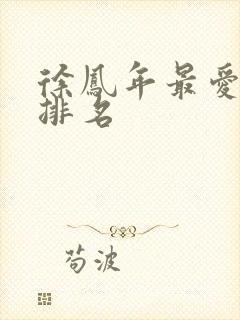 徐鳳年最愛
排名
苟波